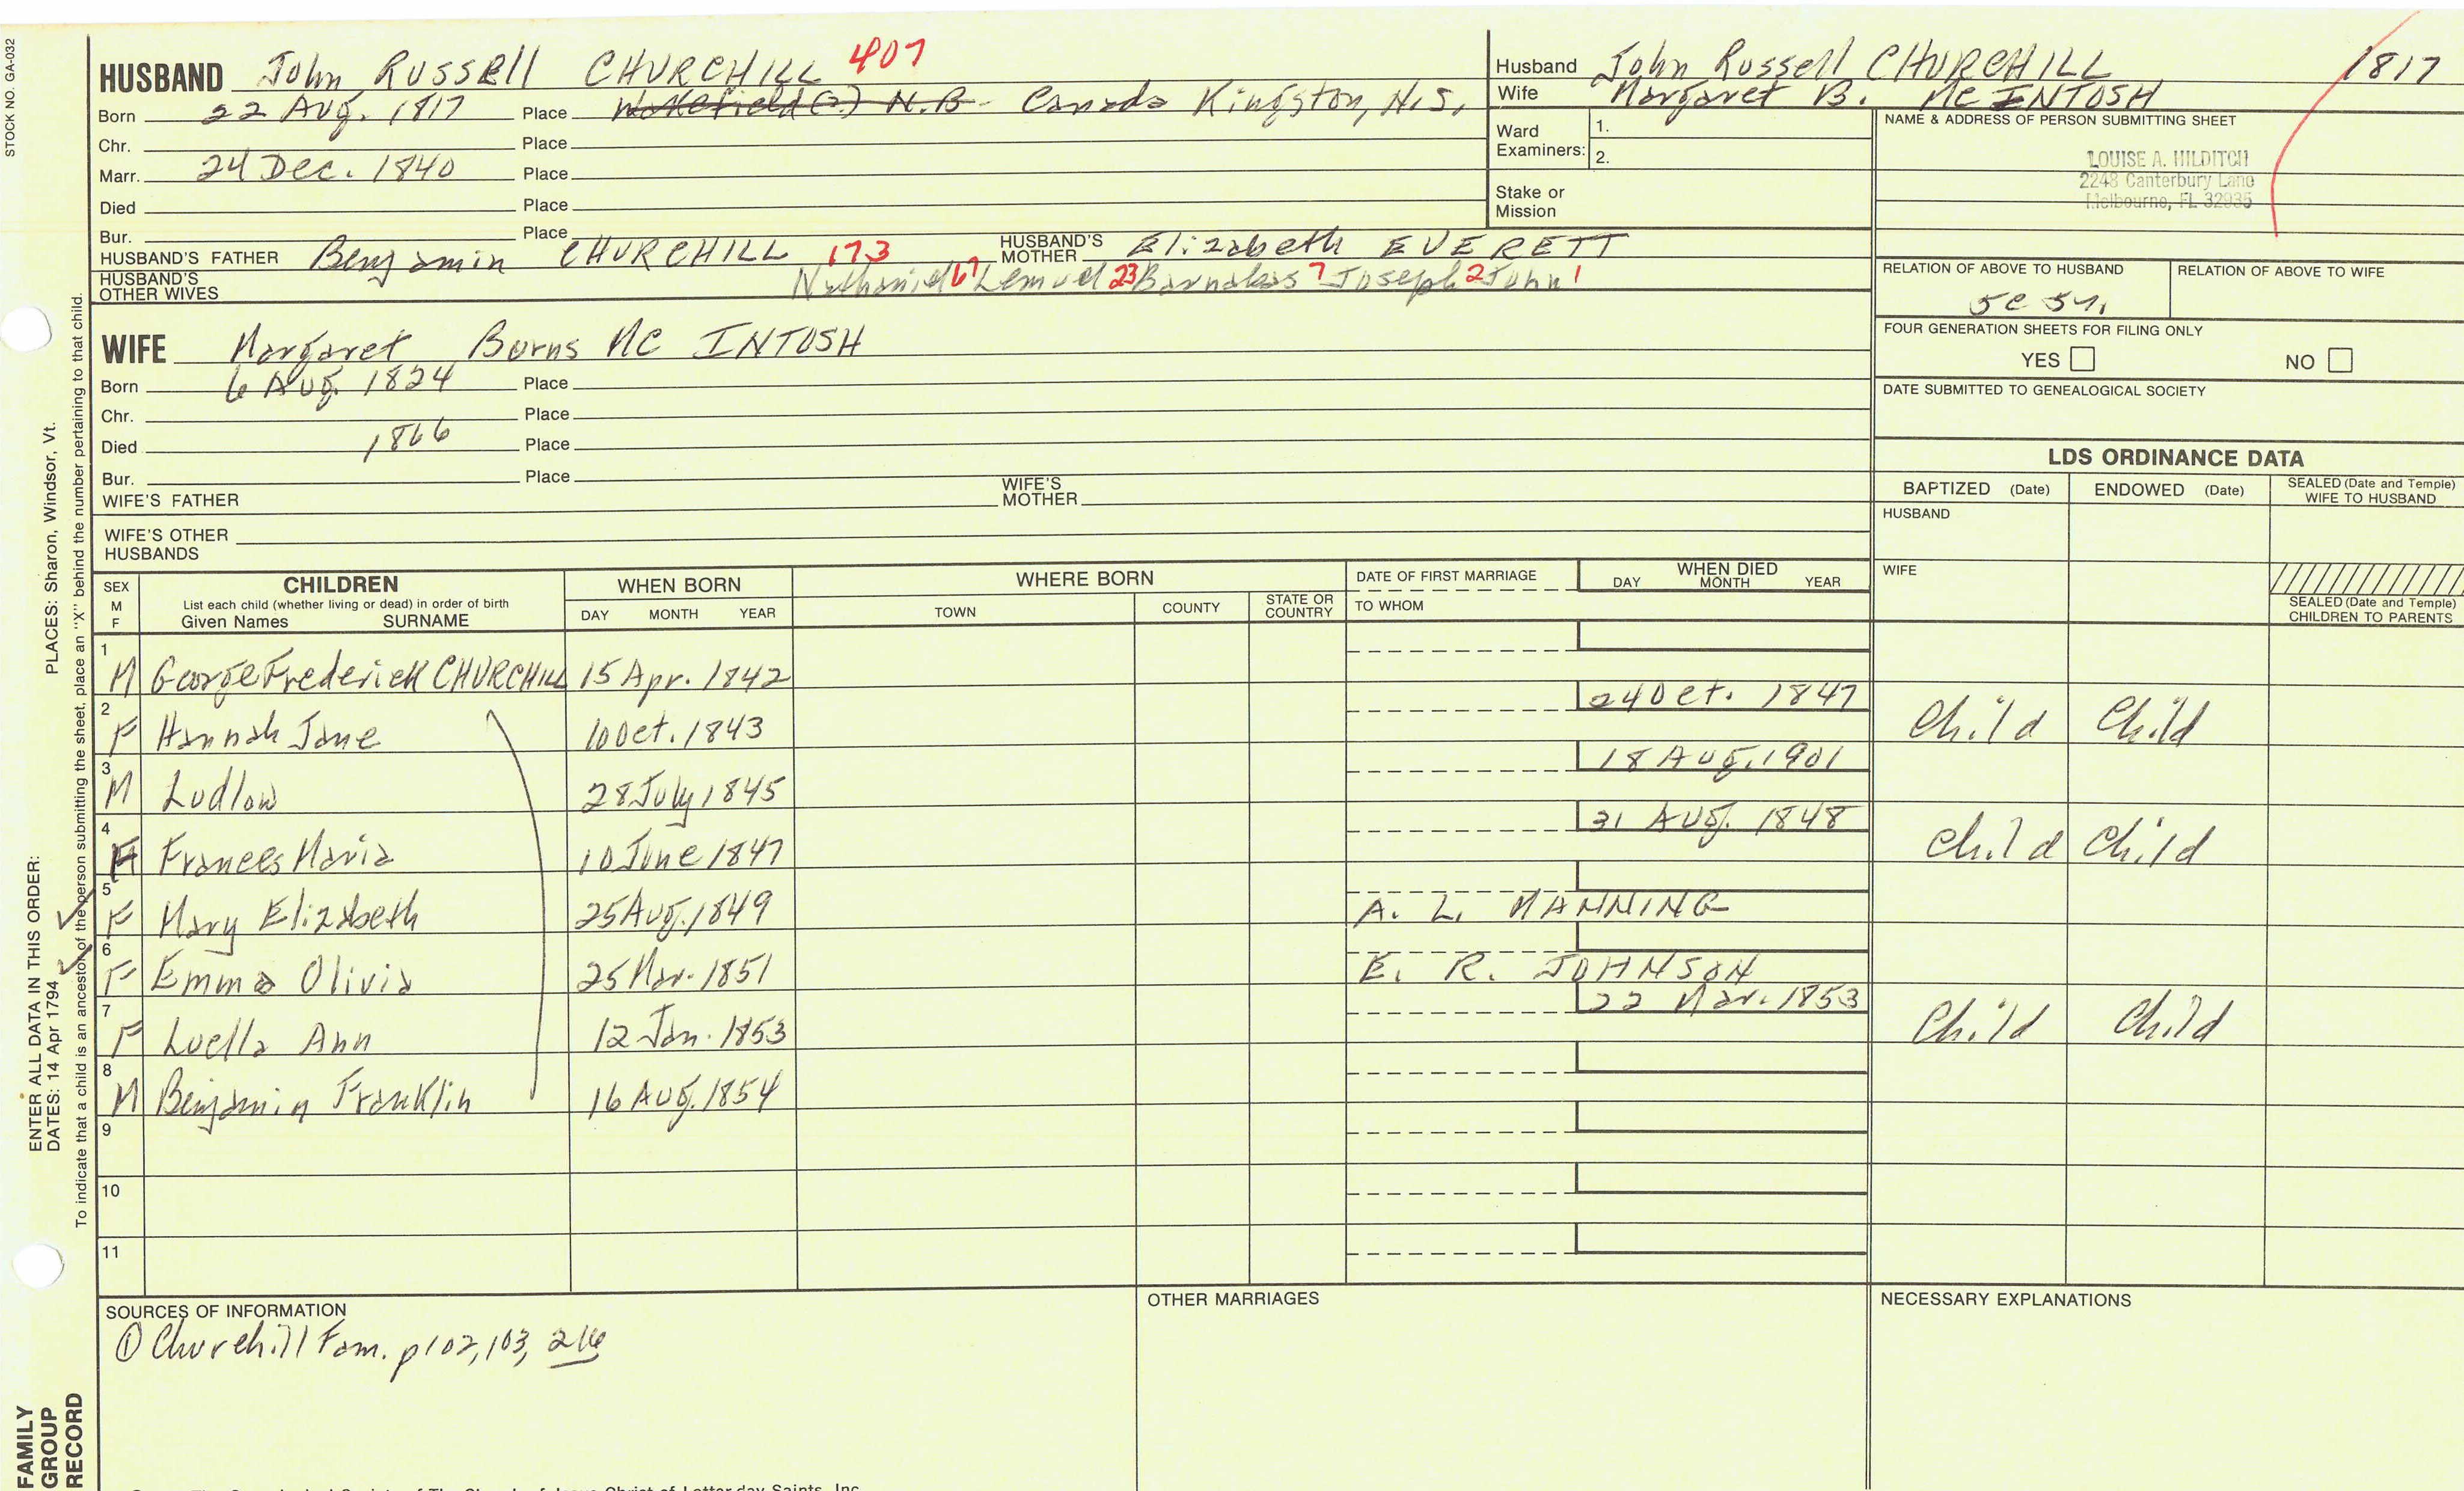 STOCK NO. GA-032
HUSBAND John Russell CHURCHILL 407
Born 22 Aug. 1817 Place Wakefield(?) N.B. Canada Kingston, N.S.
Chr. Place
Marr. 24 Dec. 1840 Place
Died Place
Bur. Place
HUSBAND'S FATHER Benjamin CHURCHILL 173 HUSBAND'S MOTHER Elizabeth EVERETT
HUSBAND'S OTHER WIVES Nathaniel 67 Lemuel 23 Barnabas 7 Joseph 2 John 1
WIFE Margaret Burns Mc INTOSH
Born 6 Aug. 1824 Place
Chr. Place
Died 1866 Place
Bur. Place
WIFE'S FATHER WIFE'S MOTHER
WIFE'S OTHER HUSBANDS
Husband John Russell CHURCHILL 1817
Wife Margaret B. Mc INTOSH
Ward Examiners: 1.
2.
Stake or Mission
NAME & ADDRESS OF PERSON SUBMITTING SHEET
LOUISE A. HILDITCH
2248 Canterbury Lane
Melbourne, FL 32935
RELATION OF ABOVE TO HUSBAND RELATION OF ABOVE TO WIFE
5c 5r.
FOUR GENERATION SHEETS FOR FILING ONLY
YES NO
DATE SUBMITTED TO GENEALOGICAL SOCIETY
LDS ORDINANCE DATA
BAPTIZED (Date) ENDOWED (Date) SEALED (Date and Temple) WIFE TO HUSBAND
HUSBAND
WIFE
SEALED (Date and Temple) CHILDREN TO PARENTS
SEX M F CHILDREN List each child (whether living or dead) in order of birth Given Names SURNAME WHEN BORN DAY MONTH YEAR WHERE BORN TOWN COUNTY STATE OR COUNTRY DATE OF FIRST MARRIAGE TO WHOM WHEN DIED DAY MONTH YEAR
1 M George Frederick CHURCHILL 15 Apr. 1842
2 F Hannah Jane 10 Oct. 1843 24 Oct. 1847 Child Child
3 M Ludlow 28 July 1845 18 Aug. 1901
4 F Frances Maria 10 June 1847 31 Aug. 1848 Child Child
5 F Mary Elizabeth 25 Aug. 1849 A. L. MANNING
6 F Emma Olivia 25 Mar. 1851 E. R. JOHNSON
7 F Luella Ann 12 Jan. 1853 22 Mar. 1853 Child Child
8 M Benjamin Franklin 16 Aug. 1854
9
10
11
SOURCES OF INFORMATION
① Churchill Fam. p 102, 103, 216
OTHER MARRIAGES
NECESSARY EXPLANATIONS
PLACES: Sharon, Windsor, Vt.
ENTER ALL DATA IN THIS ORDER:
DATES: 14 Apr 1794
To indicate that a child is an ancestor of the person submitting the sheet, place an "X" behind the number pertaining to that child.
FAMILY
GROUP
RECORD